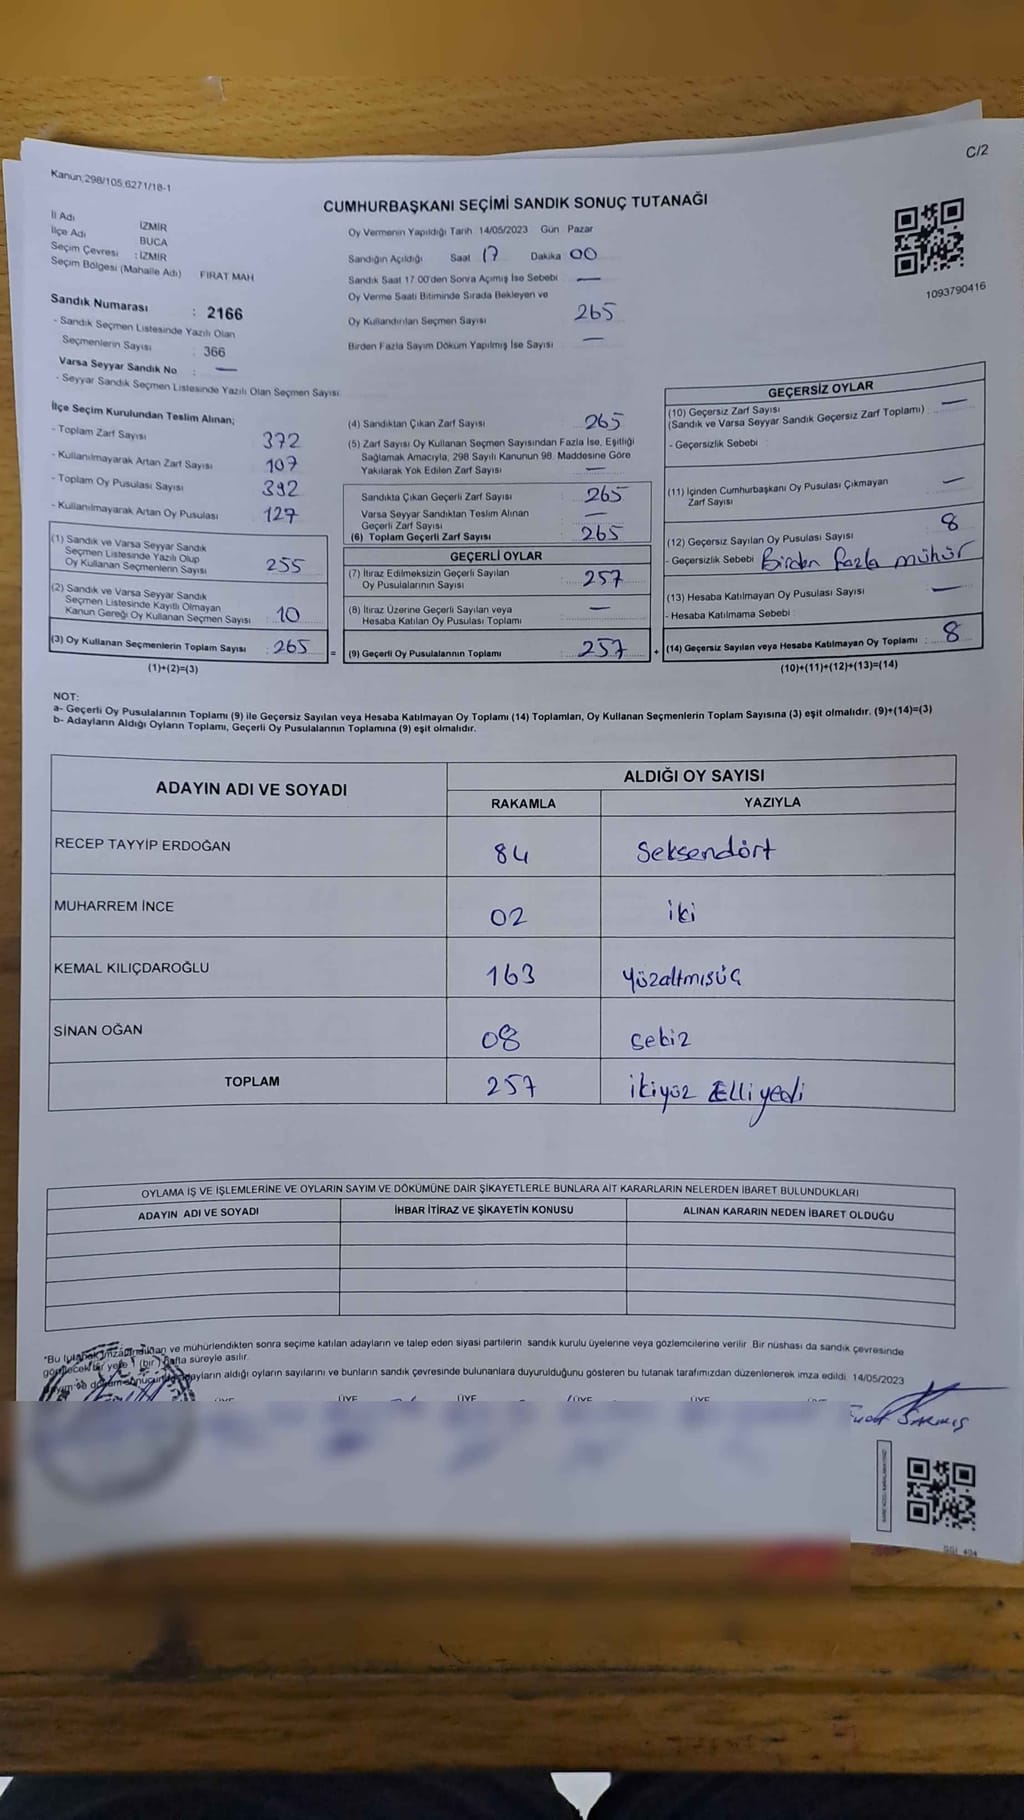 C/2
Kanun;298/105,6271/18-1
CUMHURBAŞKANI SEÇİMİ SANDIK SONUÇ TUTANAĞI
İl Adı İZMİR
İlçe Adı BUCA
Seçim Çevresi : İZMİR
Seçim Bölgesi (Mahalle Adı) FIRAT MAH
Sandık Numarası : 2166
- Sandık Seçmen Listesinde Yazılı Olan
Seçmenlerin Sayısı : 366
Varsa Seyyar Sandık No : —
- Seyyar Sandık Seçmen Listesinde Yazılı Olan Seçmen Sayısı
Oy Vermenin Yapıldığı Tarih 14/05/2023 Gün Pazar
Sandığın Açıldığı Saat 17 Dakika 00
Sandık Saat 17:00'den Sonra Açımış İse Sebebi —
Oy Verme Saati Bitiminde Sırada Bekleyen ve
Oy Kullandırılan Seçmen Sayısı 265
Birden Fazla Sayım Döküm Yapılmış İse Sayısı —
1093790416
İlçe Seçim Kurulundan Teslim Alınan;
- Toplam Zarf Sayısı 372
- Kullanılmayarak Artan Zarf Sayısı 107
- Toplam Oy Pusulası Sayısı 392
- Kullanılmayarak Artan Oy Pusulası 127
(1) Sandık ve Varsa Seyyar Sandık
Seçmen Listesinde Yazılı Olup
Oy Kullanan Seçmenlerin Sayısı 255
(2) Sandık ve Varsa Seyyar Sandık
Seçmen Listesinde Kayıtlı Olmayan
Kanun Gereği Oy Kullanan Seçmen Sayısı 10
(3) Oy Kullanan Seçmenlerin Toplam Sayısı : 265 =
(1)+(2)=(3)
(4) Sandıktan Çıkan Zarf Sayısı 265
(5) Zarf Sayısı Oy Kullanan Seçmen Sayısından Fazla İse, Eşitliği
Sağlamak Amacıyla, 298 Sayılı Kanunun 98. Maddesine Göre
Yakılarak Yok Edilen Zarf Sayısı —
Sandıkta Çıkan Geçerli Zarf Sayısı : 265
Varsa Seyyar Sandıktan Teslim Alınan
Geçerli Zarf Sayısı —
(6) Toplam Geçerli Zarf Sayısı 265
GEÇERLİ OYLAR
(7) İtiraz Edilmeksizin Geçerli Sayılan
Oy Pusulalarının Sayısı 257
(8) İtiraz Üzerine Geçerli Sayılan veya
Hesaba Katılan Oy Pusulası Toplamı —
(9) Geçerli Oy Pusulalarının Toplamı 257 +
GEÇERSİZ OYLAR
(10) Geçersiz Zarf Sayısı
(Sandık ve Varsa Seyyar Sandık Geçersiz Zarf Toplamı) : —
- Geçersizlik Sebebi :
(11) İçinden Cumhurbaşkanı Oy Pusulası Çıkmayan
Zarf Sayısı —
(12) Geçersiz Sayılan Oy Pusulası Sayısı 8
- Geçersizlik Sebebi Birden fazla mühür
(13) Hesaba Katılmayan Oy Pusulası Sayısı —
- Hesaba Katılmama Sebebi :
(14) Geçersiz Sayılan veya Hesaba Katılmayan Oy Toplamı : 8
(10)+(11)+(12)+(13)=(14)
NOT:
a- Geçerli Oy Pusulalarının Toplamı (9) ile Geçersiz Sayılan veya Hesaba Katılmayan Oy Toplamı (14) Toplamları, Oy Kullanan Seçmenlerin Toplam Sayısına (3) eşit olmalıdır. (9)+(14)=(3)
b- Adayların Aldığı Oyların Toplamı, Geçerli Oy Pusulalarının Toplamına (9) eşit olmalıdır.
ADAYIN ADI VE SOYADI ALDIĞI OY SAYISI
RAKAMLA YAZIYLA
RECEP TAYYİP ERDOĞAN 84 Seksendört
MUHARREM İNCE 02 iki
KEMAL KILIÇDAROĞLU 163 yüzaltmısüç
SİNAN OĞAN 08 sekiz
TOPLAM 257 ikiyüz Elli yedi
OYLAMA İŞ VE İŞLEMLERİNE VE OYLARIN SAYIM VE DÖKÜMÜNE DAİR ŞİKAYETLERLE BUNLARA AİT KARARLARIN NELERDEN İBARET BULUNDUKLARI
ADAYIN ADI VE SOYADI İHBAR İTİRAZ VE ŞİKAYETİN KONUSU ALINAN KARARIN NEDEN İBARET OLDUĞU
"Bu tutanak imzalandıktan ve mühürlendikten sonra seçime katılan adayların ve talep eden siyasi partilerin sandık kurulu üyelerine veya gözlemcilerine verilir. Bir nüshası da sandık çevresinde
görülecek bir yere 1 (bir) hafta süreyle asılır.
adayların aldığı oyların sayılarını ve bunların sandık çevresinde bulunanlara duyurulduğunu gösteren bu tutanak tarafımızdan düzenlenerek imza edildi. 14/05/2023
ÜYE ÜYE ÜYE ÜYE ÜYE